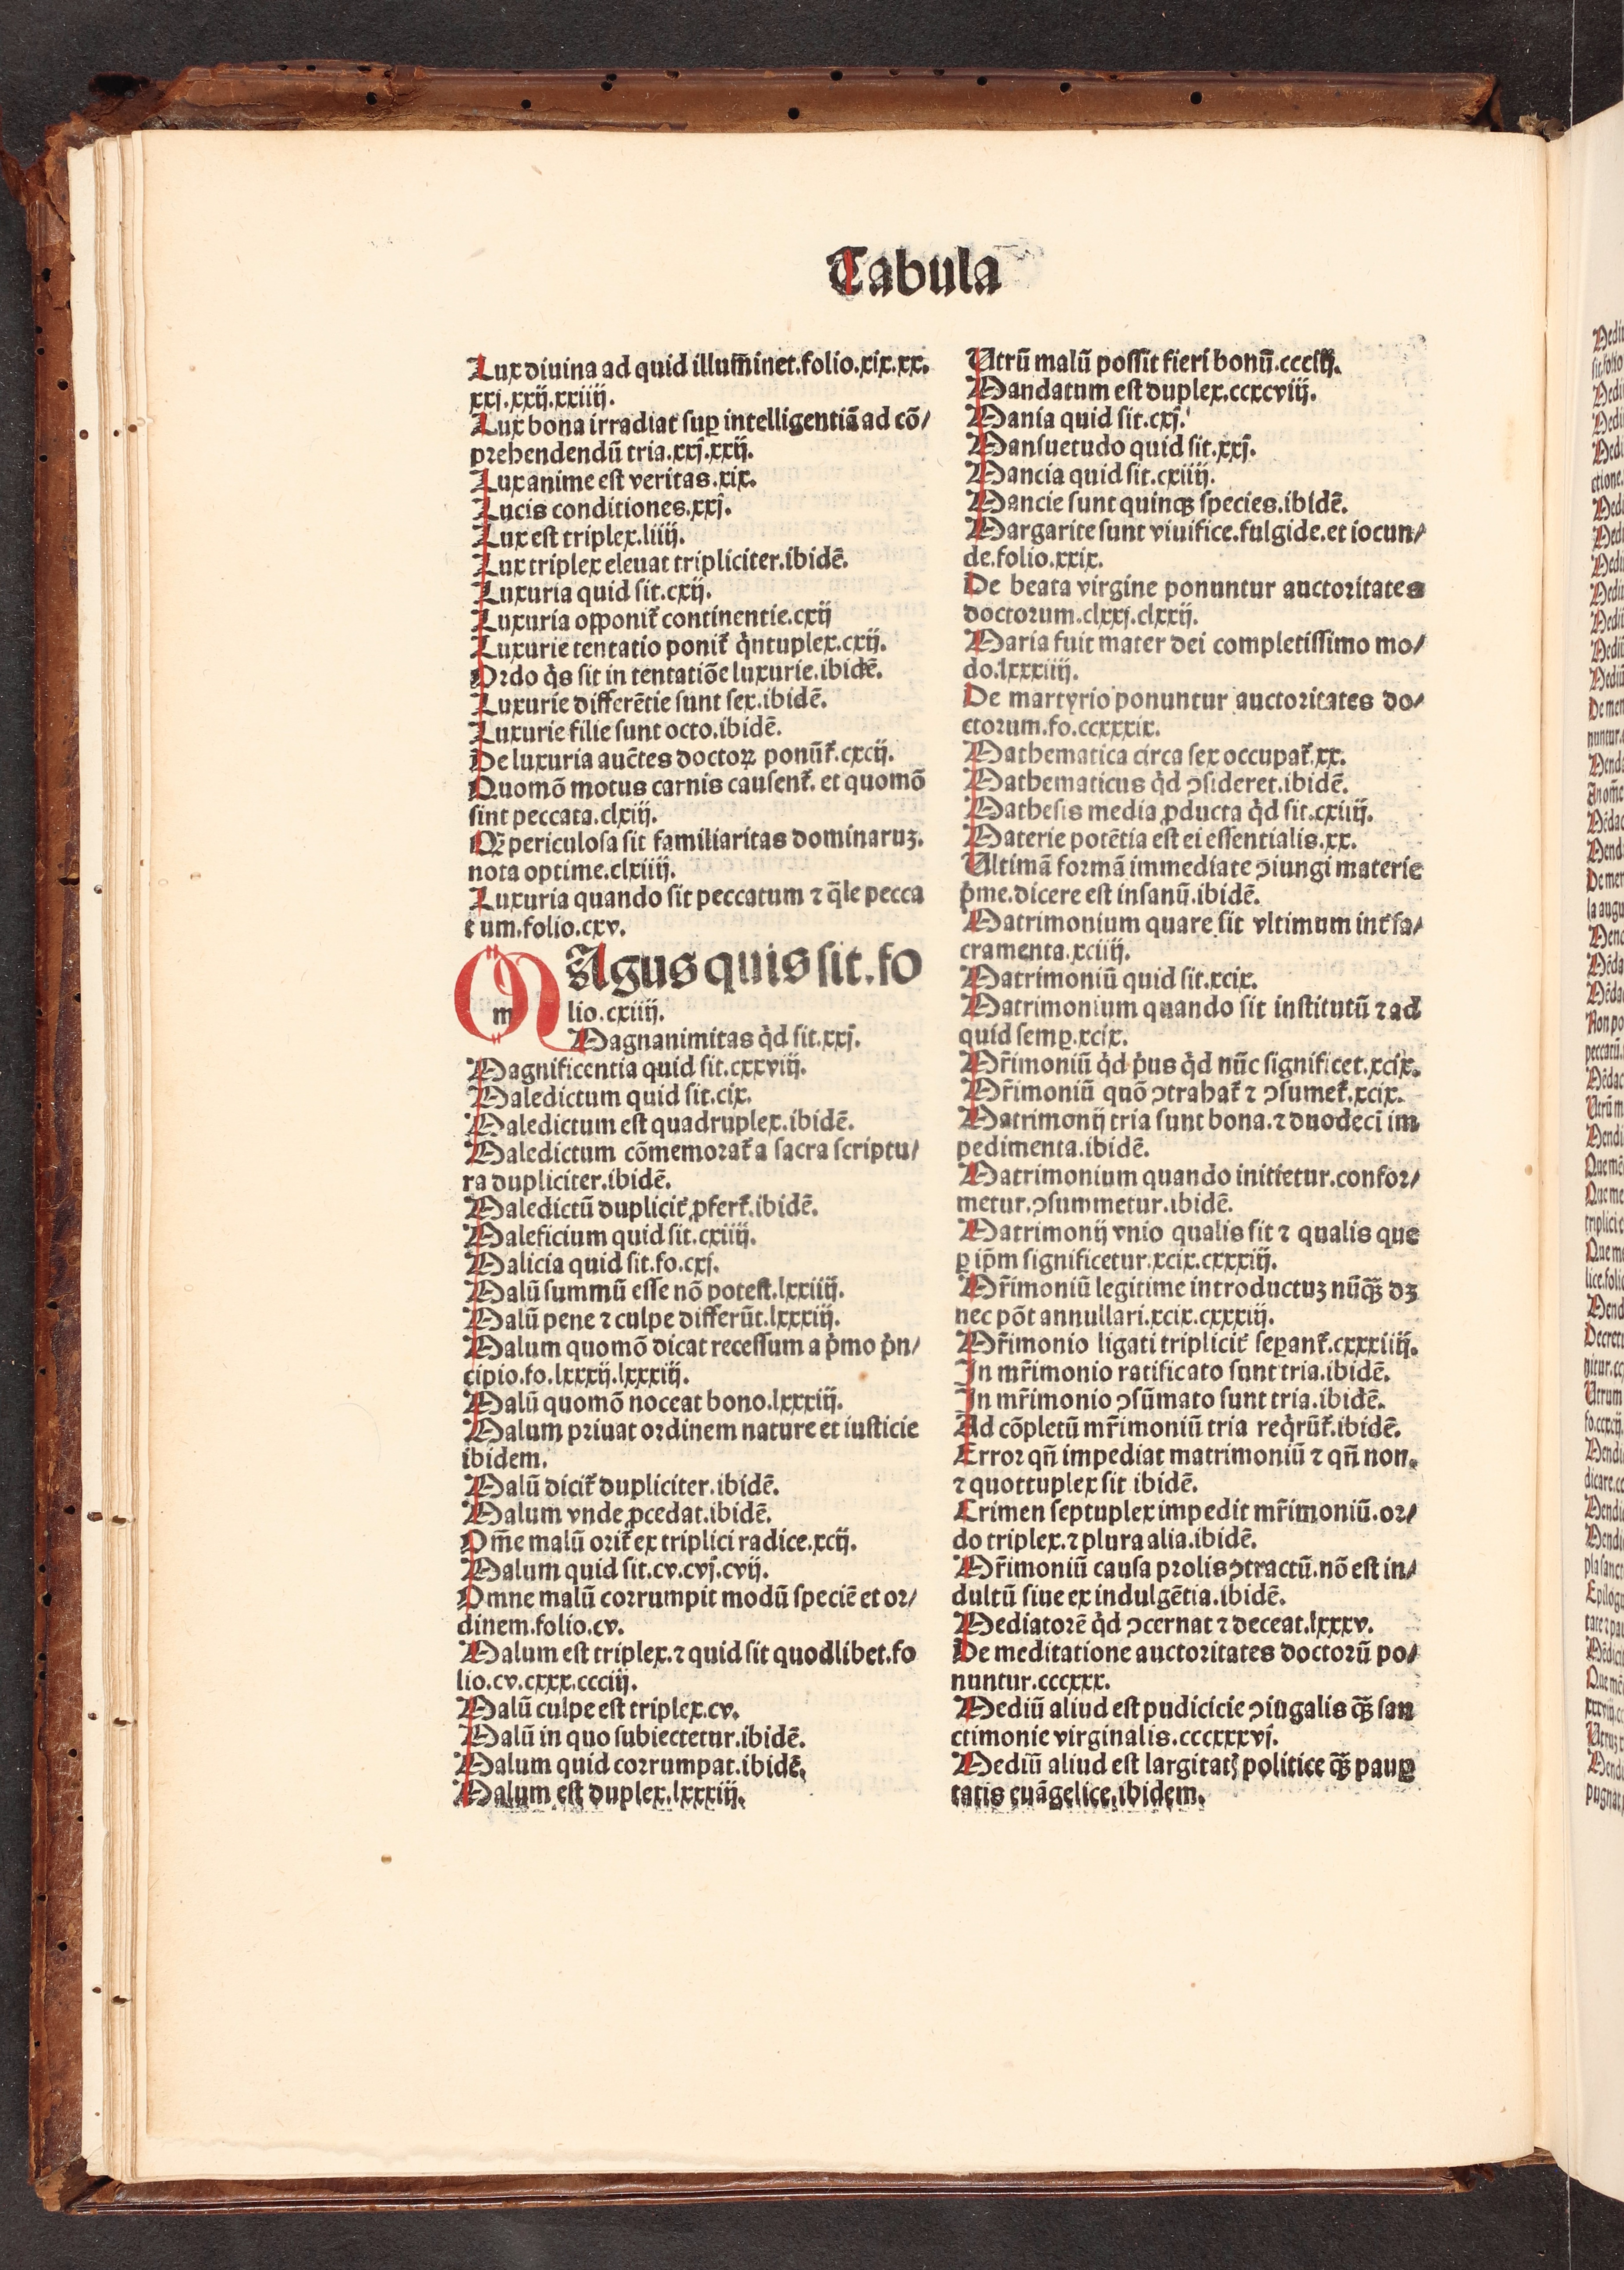 Tabula
Lux diuina ad quid illum̄inet.folio.xix.xx.
xxj.xxij.xxiiij.
Lux bona irradiat suꝑ intelligentiā ad cō/
prehendendū tria.xxj.xxij.
Lux anime est veritas.xix.
Lucis conditiones.xxj.
Lux est triplex.liiij.
Lux triplex eleuat tripliciter.ibidē.
Luxuria quid sit.cxij.
Luxuria opponit̉ continentie.cxij
Luxurie tentatio ponit̉ q̇ntuplex.cxij.
Ordo q̇s sit in tentatiōe luxurie.ibidē.
Luxurie differētie sunt sex.ibidē.
Luxurie filie sunt octo.ibidē.
De luxuria auc̄tes doctoꝝ ponūt̉.cxcij.
Quomō motus carnis causent̉. et quomō
sint peccata.clxiij.
Qꝫ periculosa sit familiaritas dominaruꝫ.
nota optime.clxiiij.
Luxuria quando sit peccatum ⁊ q̄le pecca
tum.folio.cxv.
MAgus quis sit.fo
m lio.cxiiij.
Magnanimitas q̇d sit.xxj.
Magnificentia quid sit.cxxviij.
Maledictum quid sit.cix.
Maledictum est quadruplex.ibidē.
Maledictum cōmemorat̉ a sacra scriptu/
ra dupliciter.ibidē.
Maledictū duplicit̉ ꝓfert̉.ibidē.
Maleficium quid sit.cxiiij.
Malicia quid sit.fo.cxj.
Malū summū esse nō potest.lxxiiij.
Malū pene ⁊ culpe differūt.lxxxiij.
Malum quomō dicat recessum a ṗmo ṗn/
cipio.fo.lxxxij.lxxxiij.
Malū quomō noceat bono.lxxxiij.
Malum priuat ordinem nature et iusticie
ibidem.
Malū dicit̉ dupliciter.ibidē.
Malum vnde ꝓcedat.ibidē.
Om̄e malū orit̉ ex triplici radice.xcij.
Malum quid sit.cv.cvj.cvij.
Omne malū corrumpit modū speciē et or/
dinem.folio.cv.
Malum est triplex.⁊ quid sit quodlibet.fo
lio.cv.cxxx.ccciij.
Malū culpe est triplex.cv.
Malū in quo subiectetur.ibidē.
Malum quid corrumpat.ibidē.
Malum est duplex.lxxxiij.
Utrū malū possit fieri bonū.ccciiij.
Mandatum est duplex.ccxcviij.
Mania quid sit.cxj.
Mansuetudo quid sit.xxj.
Mancia quid sit.cxiiij.
Mancie sunt quinqꝫ species.ibidē.
Margarite sunt viuifice.fulgide.et iocun/
de.folio.xxix.
De beata virgine ponuntur auctoritates
doctorum.clxxj.clxxij.
Maria fuit mater dei completissimo mo/
do.lxxxiiij.
De martyrio ponuntur auctoritates do/
ctorum.fo.ccxxxix.
Mathematica circa sex occupat̉.xx.
Mathematicus q̇d ↄsideret.ibidē.
Mathesis media ꝓducta q̇d sit.cxiiij.
Materie potētia est ei essentialis.xx.
Ultimā formā immediate ↄiungi materie
ṗme.dicere est insanū.ibidē.
Matrimonium quare sit vltimum int̉ sa/
cramenta.xciiij.
Matrimoniū quid sit.xcix.
Matrimonium quando sit institutū ⁊ ad
quid semꝑ.xcix.
Mr̄imoniū q̇d ṗus q̇d nūc significet.xcix.
Mr̄imoniū quō ↄtrahat̉ ⁊ ↄsumet̉.xcix.
Matrimonij tria sunt bona.⁊ duodeci im
pedimenta.ibidē.
Matrimonium quando initietur.confor/
metur.ↄsummetur.ibidē.
Matrimonij vnio qualis sit ⁊ qualis que
ꝑ ip̄m significetur.xcix.cxxxiij.
Mr̄imoniū legitime introductuꝫ nūqꝫ dꝫ
nec pōt annullari.xcix.cxxxiij.
Mr̄imonio ligati triplicit̉ seꝑant̉.cxxxiiij.
In mr̄imonio ratificato sunt tria.ibidē.
In mr̄imonio ↄsūmato sunt tria.ibidē.
Ad cōpletū mr̄imoniū tria req̇rūt̉.ibidē.
Error qn̄ impediat matrimoniū ⁊ qn̄ non.
⁊ quottuplex sit ibidē.
Crimen septuplex impedit mr̄imoniū.or/
do triplex.⁊ plura alia.ibidē.
Mr̄imoniū causa prolis ↄtractū.nō est in/
dultū siue ex indulgētia.ibidē.
Mediatorē q̇d ↄcernat ⁊ deceat.lxxxv.
De meditatione auctoritates doctorū po/
nuntur.cccxxx.
Mediū aliud est pudicicie ↄiugalis qꝫ̄ san
ctimonie virginalis.cccxxxvj.
Mediū aliud est largitatꝭ politice qꝫ̄ pauꝑ
tatis euāgelice.ibidem.